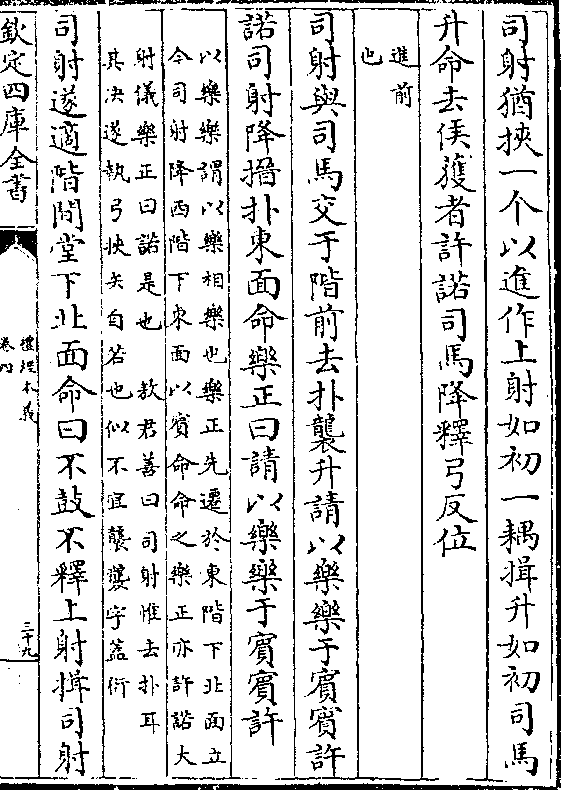 司射猶挾一个以進作上射如初一耦揖升如初司馬
升命去侯獲者許諾司馬降釋弓反位
進前
也
司射與司馬交于階前去扑襲升請以樂樂于賓賓許
諾司射降搢扑東面命樂正曰請以樂樂于賓賓許
以樂樂謂以樂相樂也樂正先遷於東階下北面立
今司射降西階下東面以賓命命之樂正亦許諾大
射儀樂正曰諾是也 敖君善曰司射惟去扑耳
其决遂執弓挾矢自若也似不宜襲襲字蓋衍
司射遂適階間堂下北面命曰不鼓不釋上射揖司射
欽定四庫全書
禮經本義
卷四
三十九